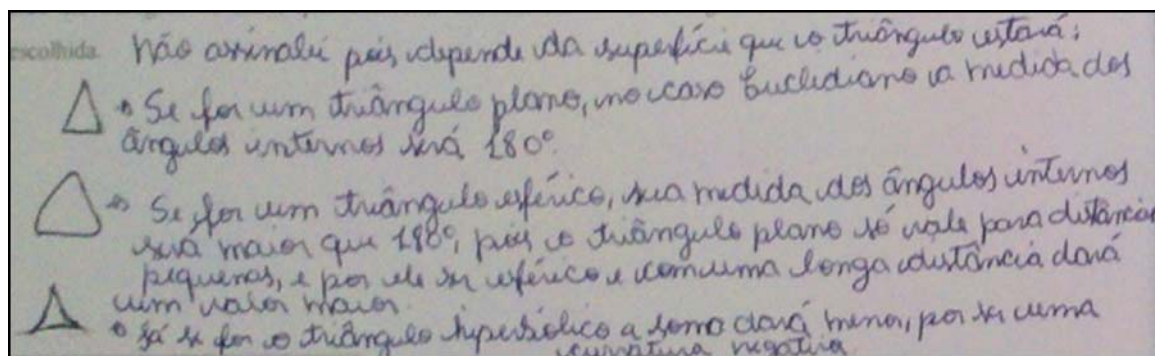 escolhida. Não assinalei pois depende da superfície que o triângulo estará:
• Se for um triângulo plano, no caso Euclidiano a medida dos
ângulos internos será 180º.
⇒ Se for um triângulo esférico, sua medida dos ângulos internos
será maior que 180º, pois o triângulo plano só vale para distâncias
pequenas, e por ele ser esférico e com uma longa distância dará
um valor maior.
• Já se for o triângulo hiperbólico a soma dará menor, por ser uma
curvatura negativa